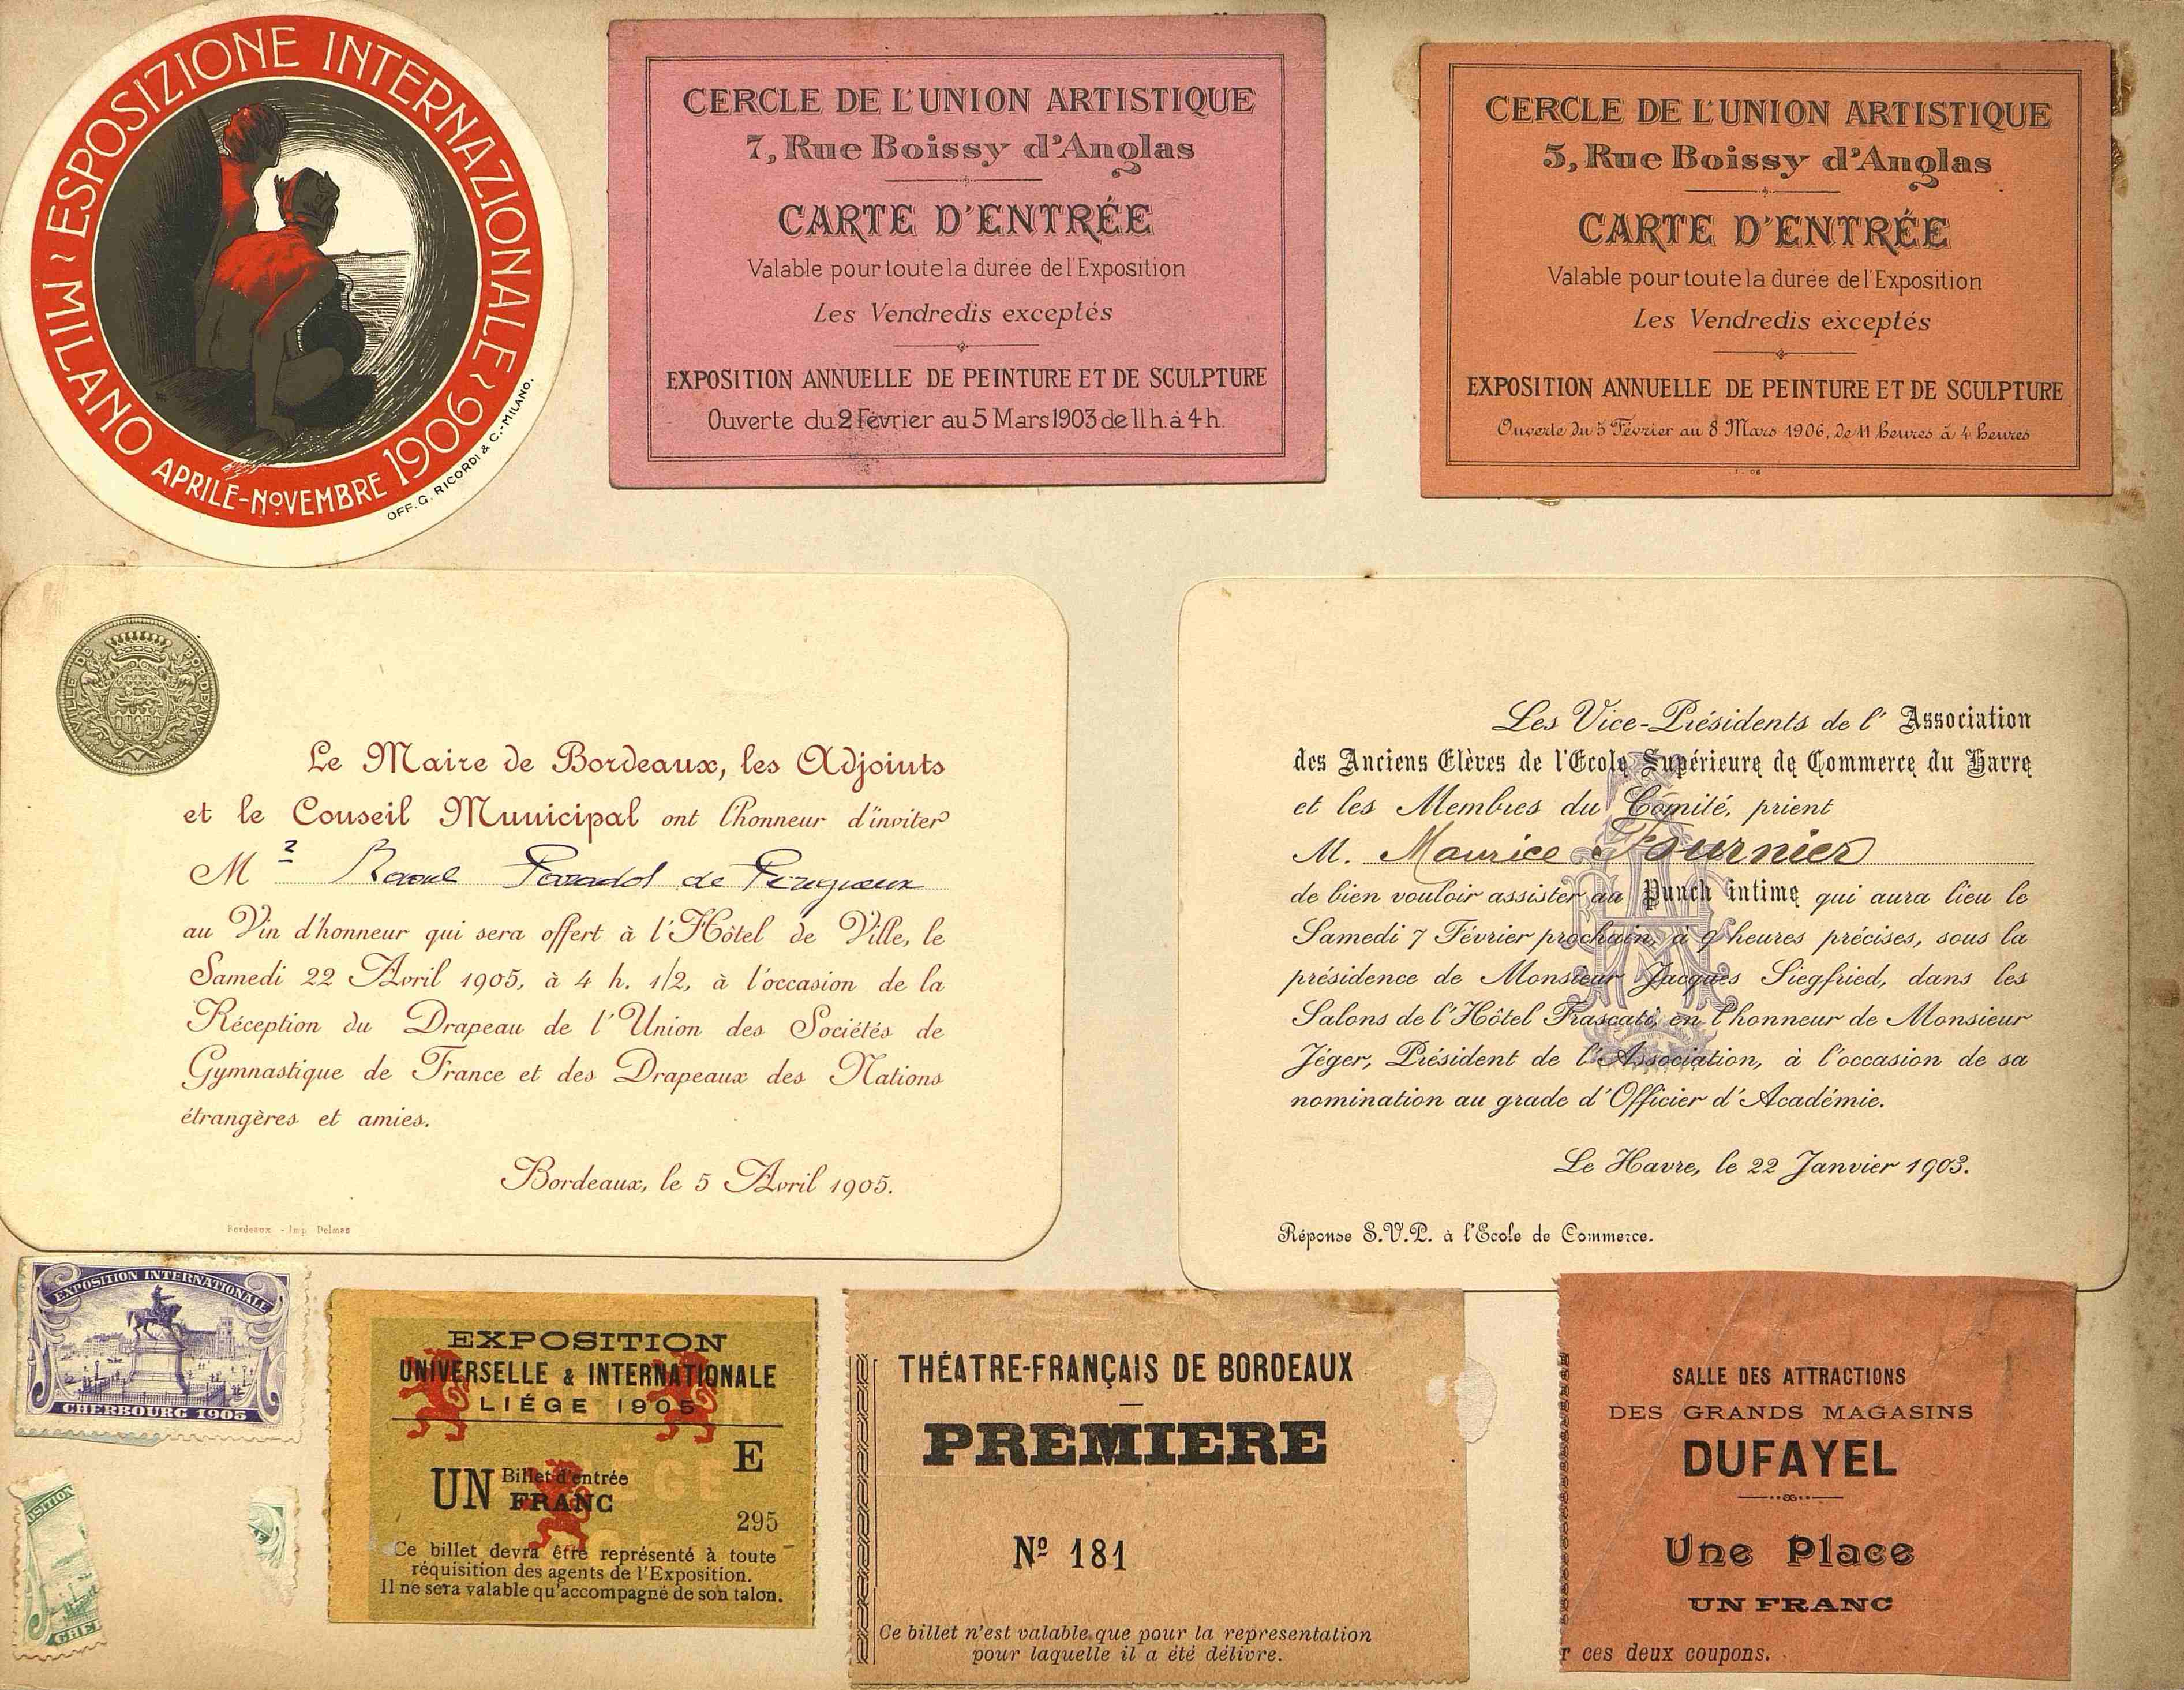 MILANO ~ ESPOSIZIONE INTERNAZIONALE ~ 1906
APRILE-NOVEMBRE
OFF. G. RICORDI & C.-MILANO.
CERCLE DE L'UNION ARTISTIQUE
7, Rue Boissy d'Anglas
CARTE D'ENTRÉE
Valable pour toute la durée de l'Exposition
Les Vendredis exceptés
EXPOSITION ANNUELLE DE PEINTURE ET DE SCULPTURE
Ouverte du 2 Février au 5 Mars 1903 de 11 h. à 4 h.
CERCLE DE L'UNION ARTISTIQUE
5, Rue Boissy d'Anglas
CARTE D'ENTRÉE
Valable pour toute la durée de l'Exposition
Les Vendredis exceptés
EXPOSITION ANNUELLE DE PEINTURE ET DE SCULPTURE
Ouverte du 5 Février au 8 Mars 1906, de 11 heures à 4 heures
VILLE DE BORDEAUX
Le Maire de Bordeaux, les Adjoints
et le Conseil Municipal ont l'honneur d'inviter
M r Raoul de
au Vin d'honneur qui sera offert à l'Hôtel de Ville, le
Samedi 22 Avril 1905, à 4 h. 1/2, à l'occasion de la
Réception du Drapeau de l'Union des Sociétés de
Gymnastique de France et des Drapeaux des Nations
étrangères et amies.
Bordeaux, le 5 Avril 1905.
Bordeaux - Imp. Delmas
Les Vice-Présidents de l' Association
des Anciens Elèves de l'Ecole Supérieure de Commerce du Havre
et les Membres du Comité, prient
M. Maurice Fournier
de bien vouloir assister au Punch intime qui aura lieu le
Samedi 7 Février prochain, à 9 heures précises, sous la
présidence de Monsieur Jacques Siegfried, dans les
Salons de l'Hôtel Frascati, en l'honneur de Monsieur
Jéger, Président de l'Association, à l'occasion de sa
nomination au grade d'Officier d'Académie.
Le Havre, le 22 Janvier 1903.
Réponse S.V.P. à l'Ecole de Commerce.
EXPOSITION INTERNATIONALE
CHERBOURG 1905
OSITION
CHER
EXPOSITION
UNIVERSELLE & INTERNATIONALE
LIÉGE 1905
E
UN Billet d'entrée
FRANC
295
Ce billet devra être représenté à toute
réquisition des agents de l'Exposition.
Il ne sera valable qu'accompagné de son talon.
THÉATRE-FRANÇAIS DE BORDEAUX
PREMIERE
Nº 181
Ce billet n'est valable que pour la representation
pour laquelle il a été délivre.
SALLE DES ATTRACTIONS
DES GRANDS MAGASINS
DUFAYEL
Une Place
UN FRANC
r ces deux coupons.